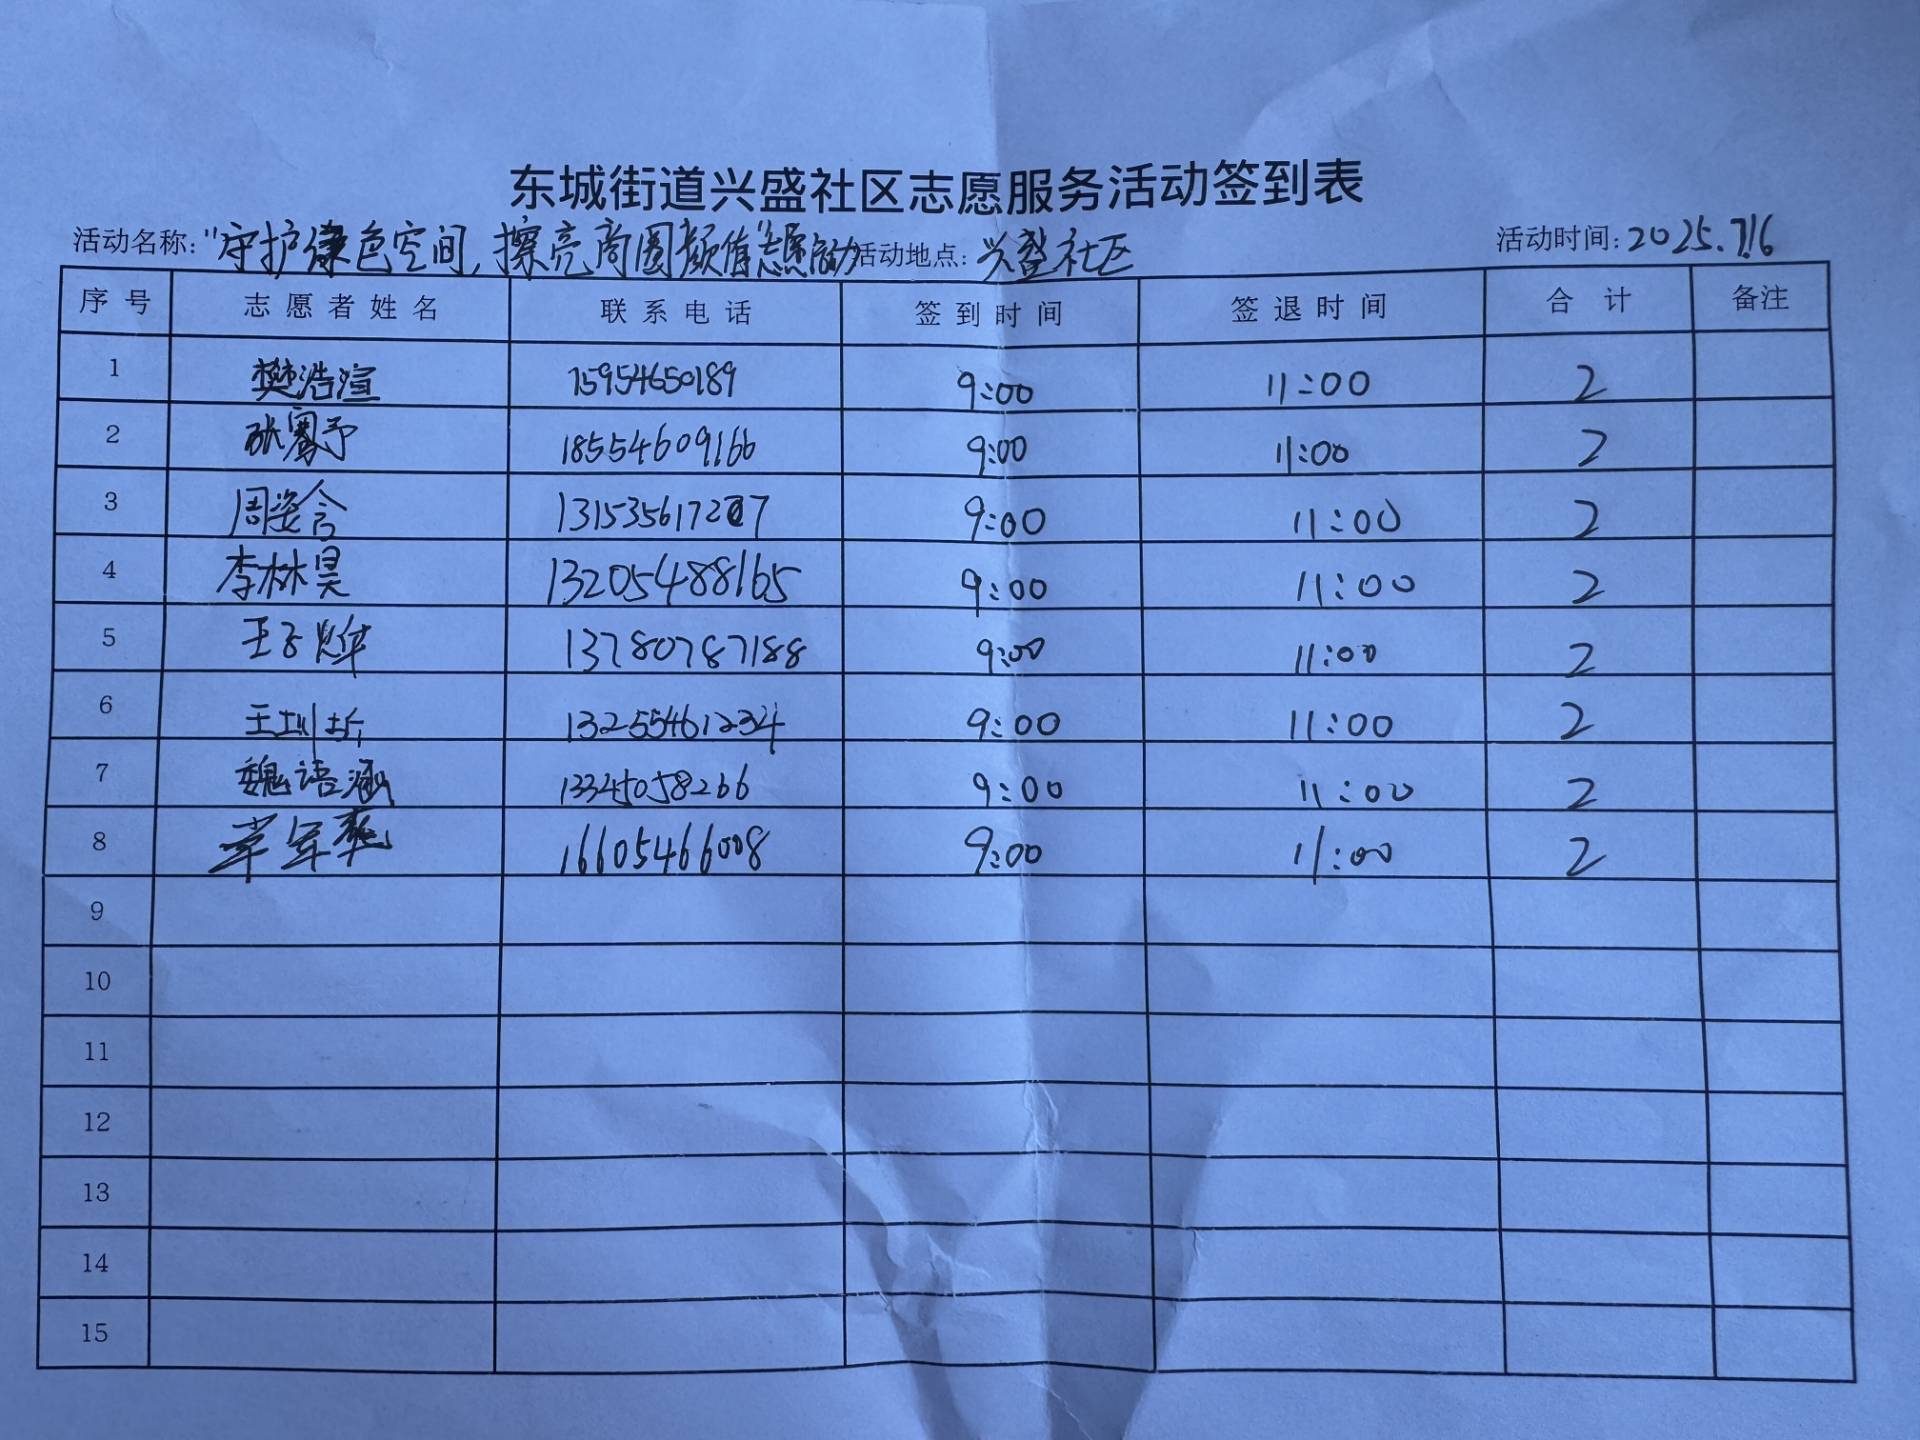 东城街道兴盛社区志愿服务活动签到表
活动名称:"守护绿色空间,擦亮商圈颜值"志愿活动 活动地点:兴盛社区 活动时间:2025.7.16
序号 志愿者姓名 联系电话 签到时间 签退时间 合计 备注
1 樊浩渲 15954650189 9:00 11:00 2
2 张骞予 18554609166 9:00 11:00 2
3 周姿含 13153561727 9:00 11:00 2
4 李林昊 13205488165 9:00 11:00 2
5 王子烨 13780787188 9:00 11:00 2
6 王圳圻 13255461234 9:00 11:00 2
7 魏语涵 13345058266 9:00 11:00 2
8 16605466008 9:00 11:00 2
9
10
11
12
13
14
15